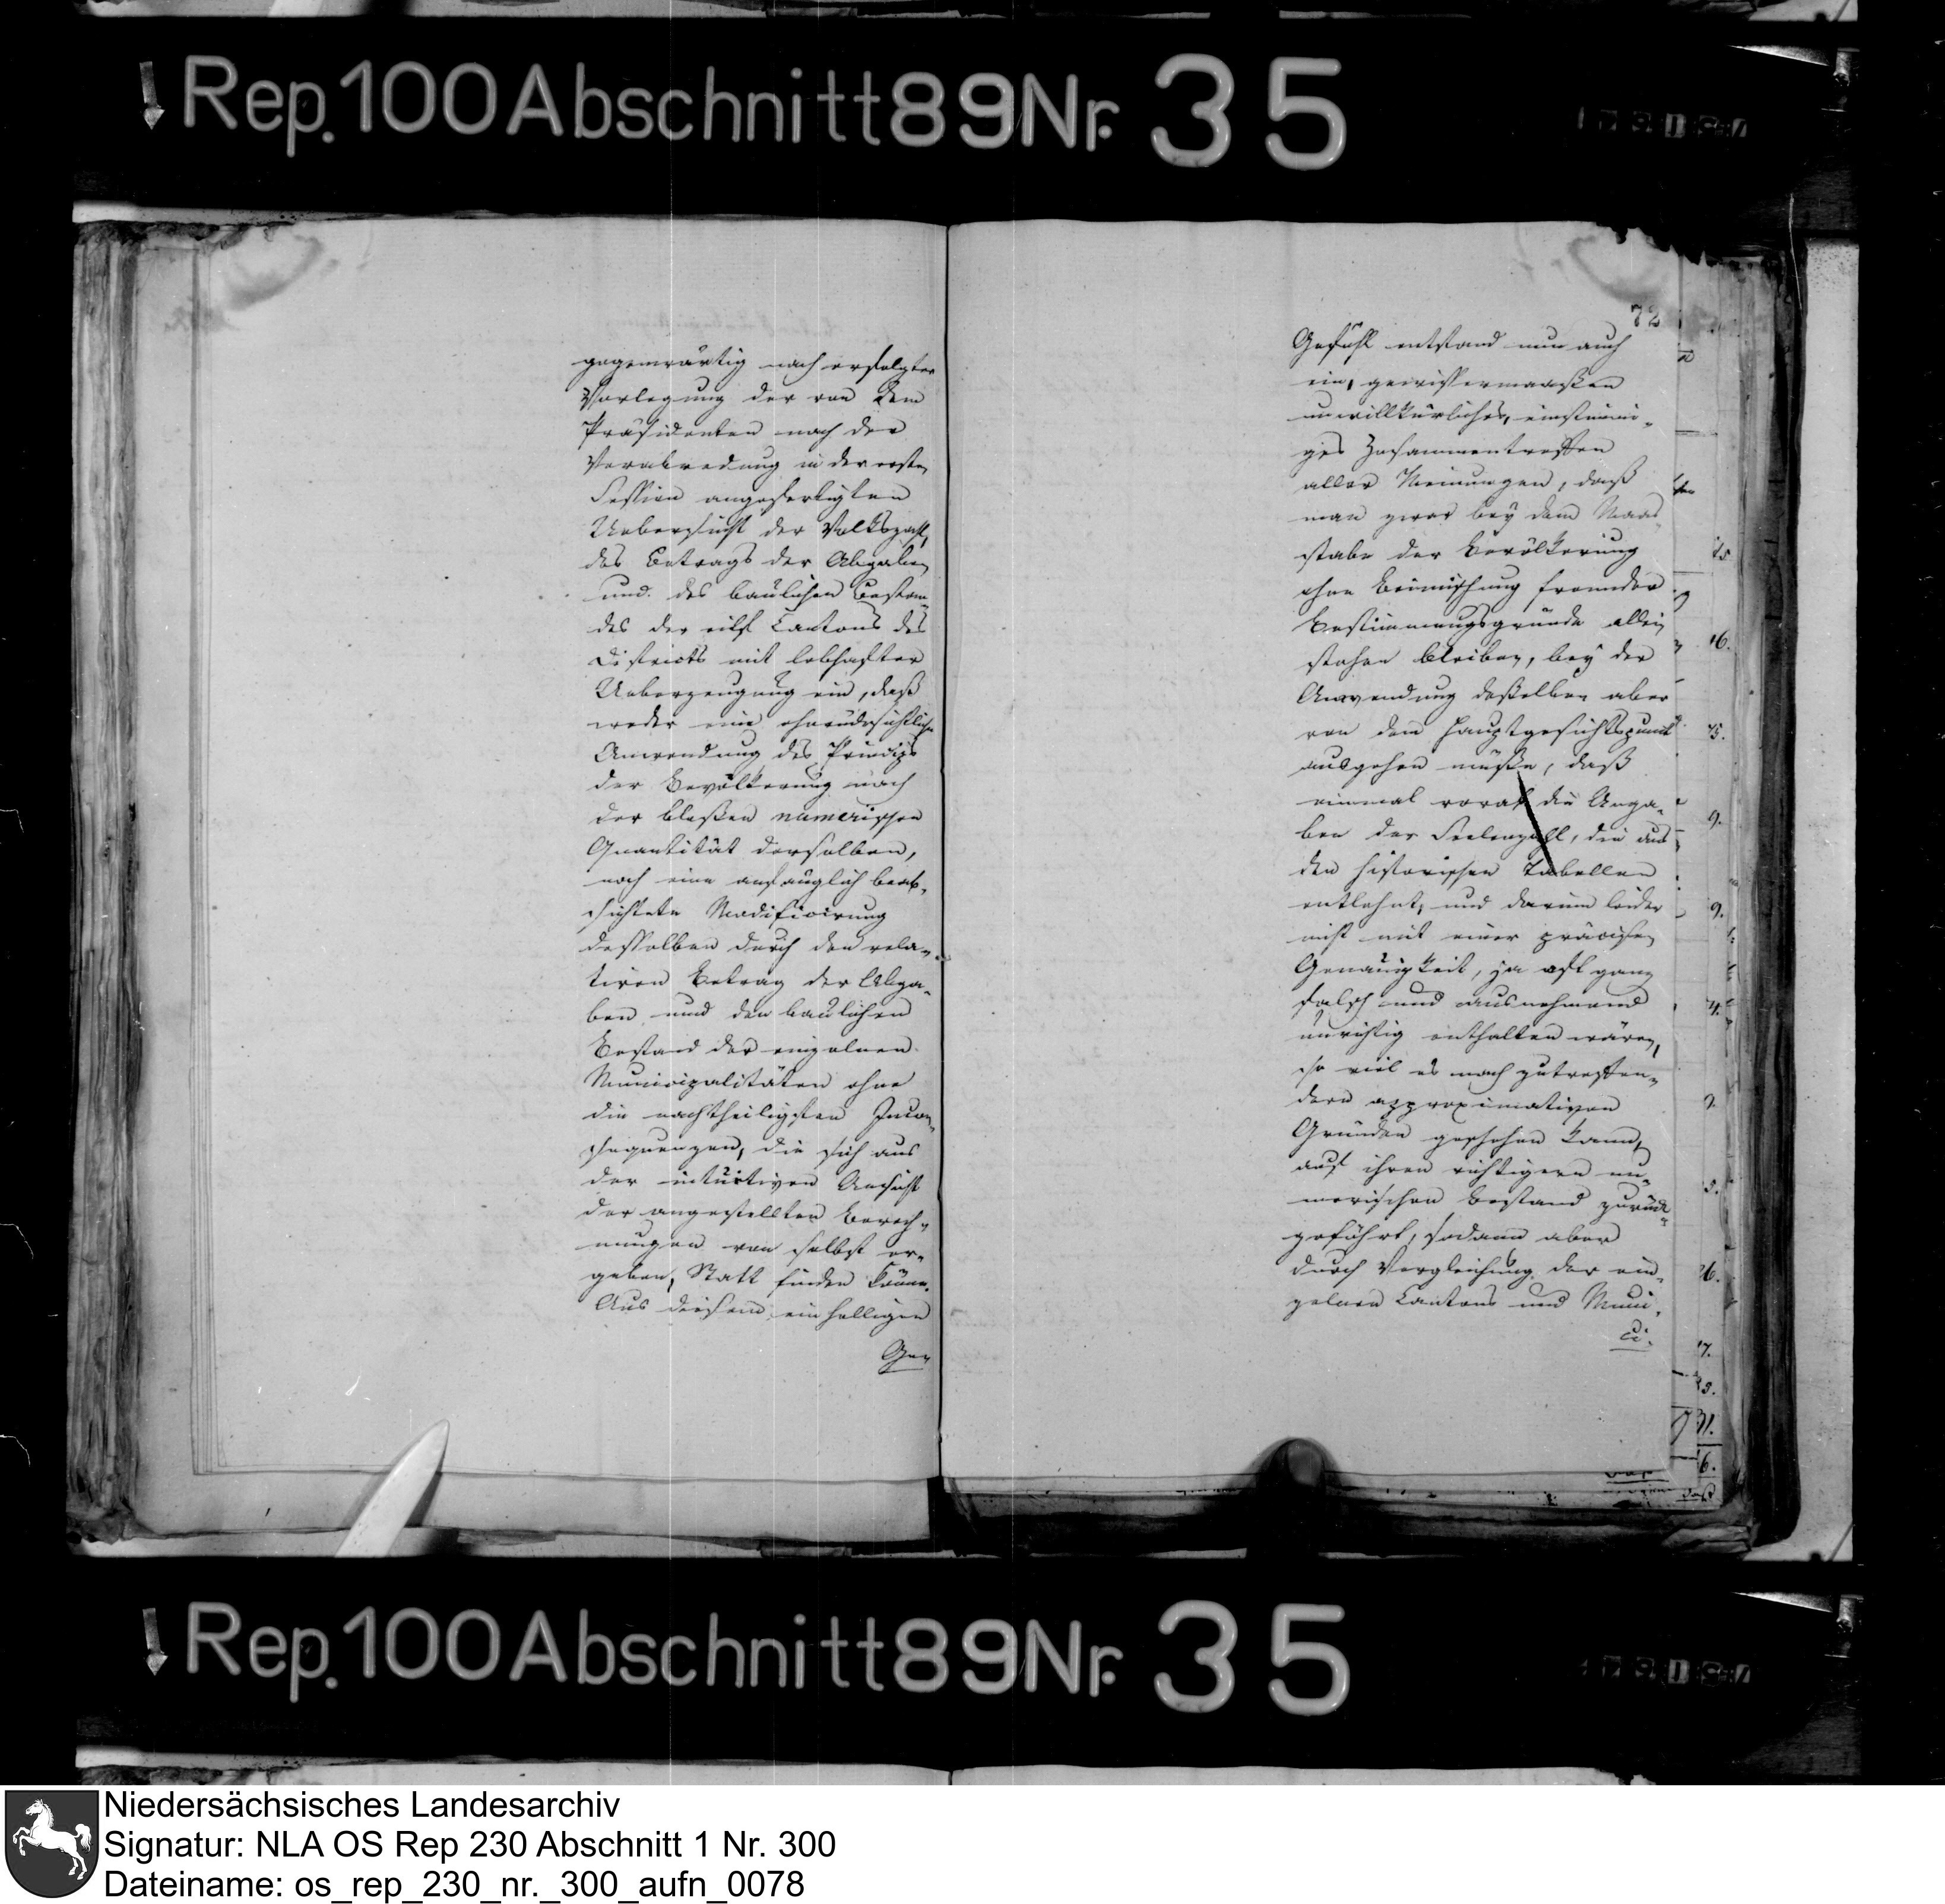 Rep. 100 Abschnitt 89 Nr. 35
gegenwärtig nach erfolgter
Vorlegung der von dem
Präsidenten nach der
Verabredung in der ersten
Session angefertigten
Uebersicht der Volkszahl,
des Betrags der Abgaben
und des baulichen Bestan-
des der eilf Cantons des
Districts mit lebhafter
Ueberzeugung ein, daß
weder eine
Anwendung des Princips
der Bevölkerung nach
der bloßen numerischen
Quantität derselben,
noch eine anfänglich beab-
sichtete Modificirung
desselben durch den rela-
tiven Betrag der Abga-
ben und den baulichen
Bestand der einzelnen
Municipalitäten ohne
die nachtheiligsten Incon-
sequenzen, die sich aus
der intuitiven Ansicht
der angestellten Berech-
nungen von selbst er-
geben, Statt finden könne.
Aus diesem einhelligen
Ge-
72
Gefühl entstand nun auch
ein, gewissermaaßen
unwillkürliches, einstimmi-
ges Zusammentreffen
aller Meinungen, daß
man zwar bey dem Maas-
stabe der Bevölkerung
ohne Beimischung fremder
Bestimmungsgründe allein
stehen bleiben, bey der
Anwendung desselben aber
von dem Hauptgesichtspunct
ausgehen müße, daß
einmal vorab die Anga-
ben der Seelenzahl, die aus
den historischen Tabellen
entlehnt, und darum leider
nicht mit einer präcisen
Genauigkeit, ja oft ganz
falsch und ausnehmend
unrichtig enthalten wären,
so viel es nach zutreffen-
dern approximativen
Gründen geschehen kann,
auf ihren richtigern nu-
merischen Bestand zurück-
geführt, sodann aber
durch Vergleichung der ein-
zelnen Cantons und Muni-
ci-
Rep. 100 Abschnitt 89 Nr. 35
Niedersächsisches Landesarchiv
Signatur: NLA OS Rep 230 Abschnitt 1 Nr. 300
Dateiname: os_rep_230_nr._300_aufn_0078